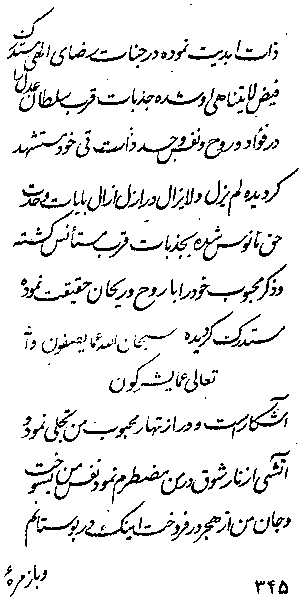 ذات ابدیت نموده در جنات رضای الهی مستدرک
فیض لایتناهی او شده جذبات قرب سلطان عدل را
در فؤاد و روح و نفس و جسد و ذات قی خود مستشهد
گردیده لم یزل و لایزال در ازل ازال بایات وحدت
حق مانوس شده بجذبات قرب مستأنس گشته
و ذکر محبوب خود را با روح و ریحان حقیقت نموده
مستدرک گردیده سبحان الله عما یصفون و
تعالی عما یشرکون
آشکار است و در ازتهار محبوب من تجلی نمود و
آتشی از نار شوق در من مضطرم نمود نفس من بسوخت
و جان من از هجر در فروخت اینک در بوستانم
و باز مرغ
۳۴۵